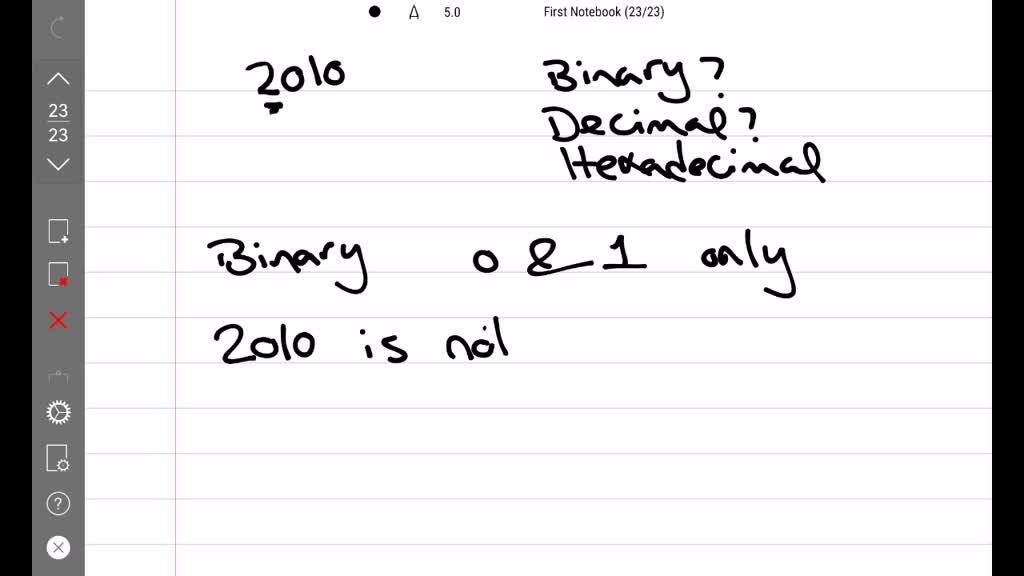 5.0 First Notebook (23/23)
23
23
2010 Binary?
Decimal?
Hexadecimal
Binary 0 & 1 only
2010 is not
?